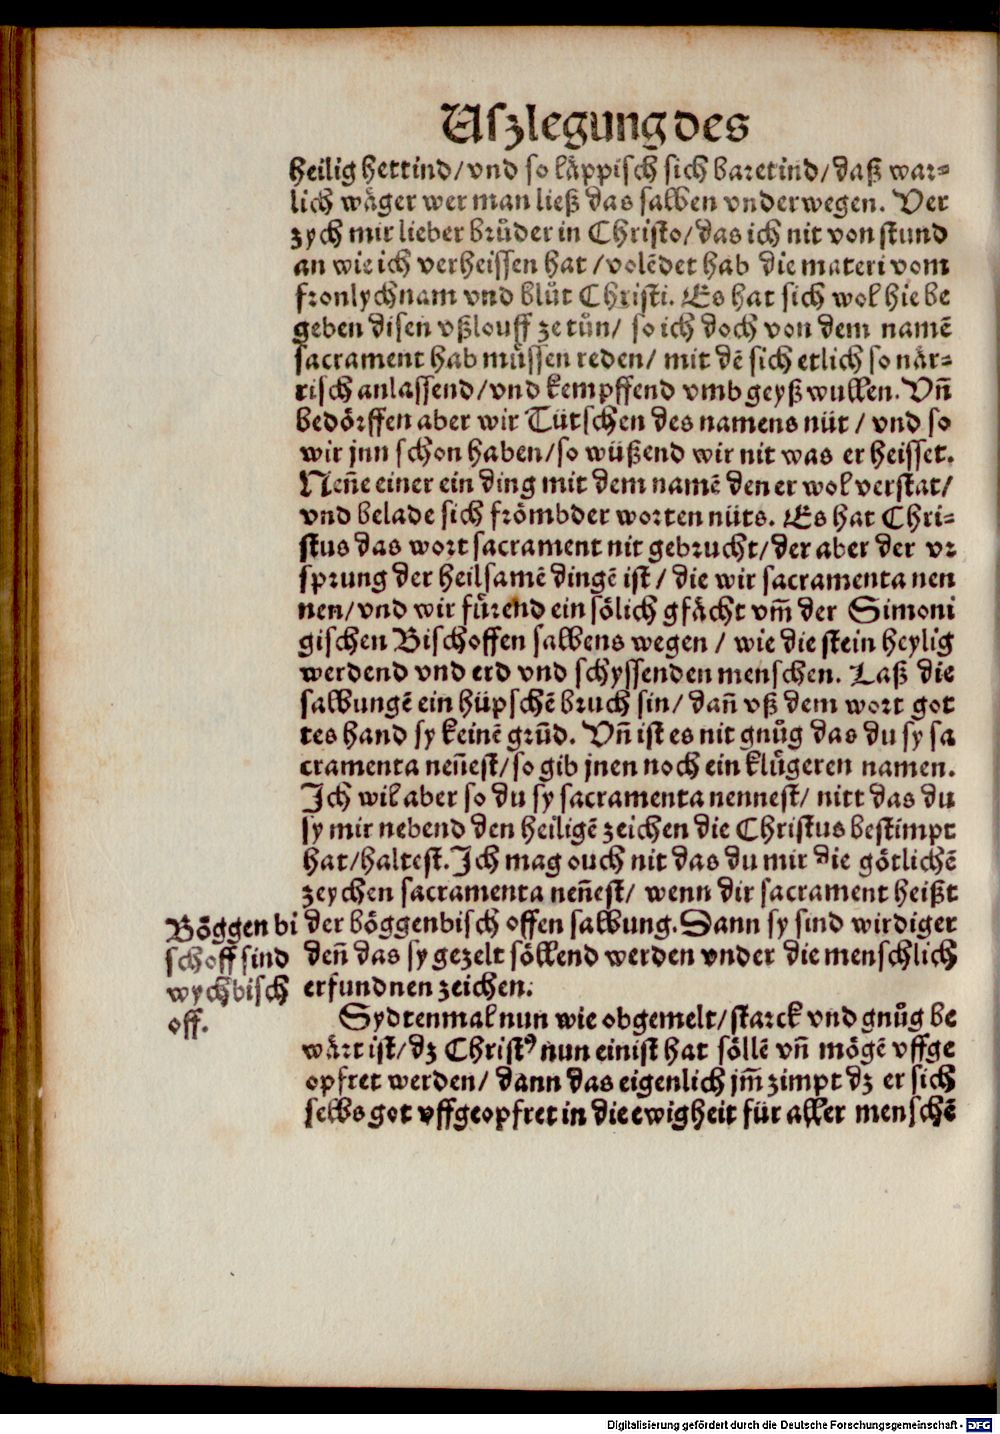 Uſzlegung des
heilig hettind/ vnd ſo läppiſch ſich baretind/ daß war-
lich wäger wer man ließ das ſalben vnderwegen. Ver
zych mir lieber brůder in Chriſto/ das ich nit von ſtund
an wie ich verheiſſen hat / volēdet hab die materi vom
fronlychnam vnd blůt Chriſti. Es hat ſich wol hie be
geben diſen vßlouff ze tůn/ ſo ich doch von dem namē
ſacrament hab müſſen reden/ mit dē ſich etlich ſo när-
riſch anlaſſend/ vnd kempffend vmb geyß wullen. Vn̄
bedörffen aber wir Tütſchen des namens nüt / vnd ſo
wir jnn ſchon haben/ ſo wüßend wir nit was er heiſſet.
Nen̄e einer ein ding mit dem namē den er wol verſtat/
vnd belade ſich frömbder worten nüts. Es hat Chri-
ſtus das wort ſacrament nit gebrucht/ der aber der vr
ſprung der heilſamē dingē iſt / die wir ſacramenta nen
nen/ vnd wir fürend ein ſölich gfächt vm̄ der Simoni
giſchen Biſchoffen ſalbens wegen / wie die ſtein heylig
werdend vnd erd vnd ſchyſſenden menſchen. Laß die
ſalbungē ein hüpſchē bruch ſin/ dan̄ vß dem wort got
tes hand ſy keinē grūd. Vn̄ iſt es nit gnůg das du ſy ſa
cramenta nen̄eſt/ ſo gib jnen noch ein klůgeren namen.
Ich wil aber ſo du ſy ſacramenta nenneſt/ nitt das du
ſy mir nebend den heiligē zeichen die Chriſtus beſtimpt
hat/ halteſt. Ich mag ouch nit das du mir die götlichē
zeychen ſacramenta nen̄eſt/ wenn dir ſacrament heißt
der böggenbiſchoffen ſalbung. Dann ſy ſind wirdiger
den̄ das ſy gezelt ſöllend werden vnder die menſchlich
erfundnen zeichen.
Böggen bi
ſchoff ſind
wychbiſch
off.
Sydtenmal nun wie obgemelt/ ſtarck vnd gnůg be
wärt iſt/ dz Chriſtꝰ nun einiſt hat ſöllē vn̄ mögē vffge
opfret werden/ dann das eigenlich jm̄ zimpt dz er ſich
ſelbs got vffgeopfret in die ewigheit für aller menſchē
Digitalisierung gefördert durch die Deutsche Forschungsgemeinschaft - DFG